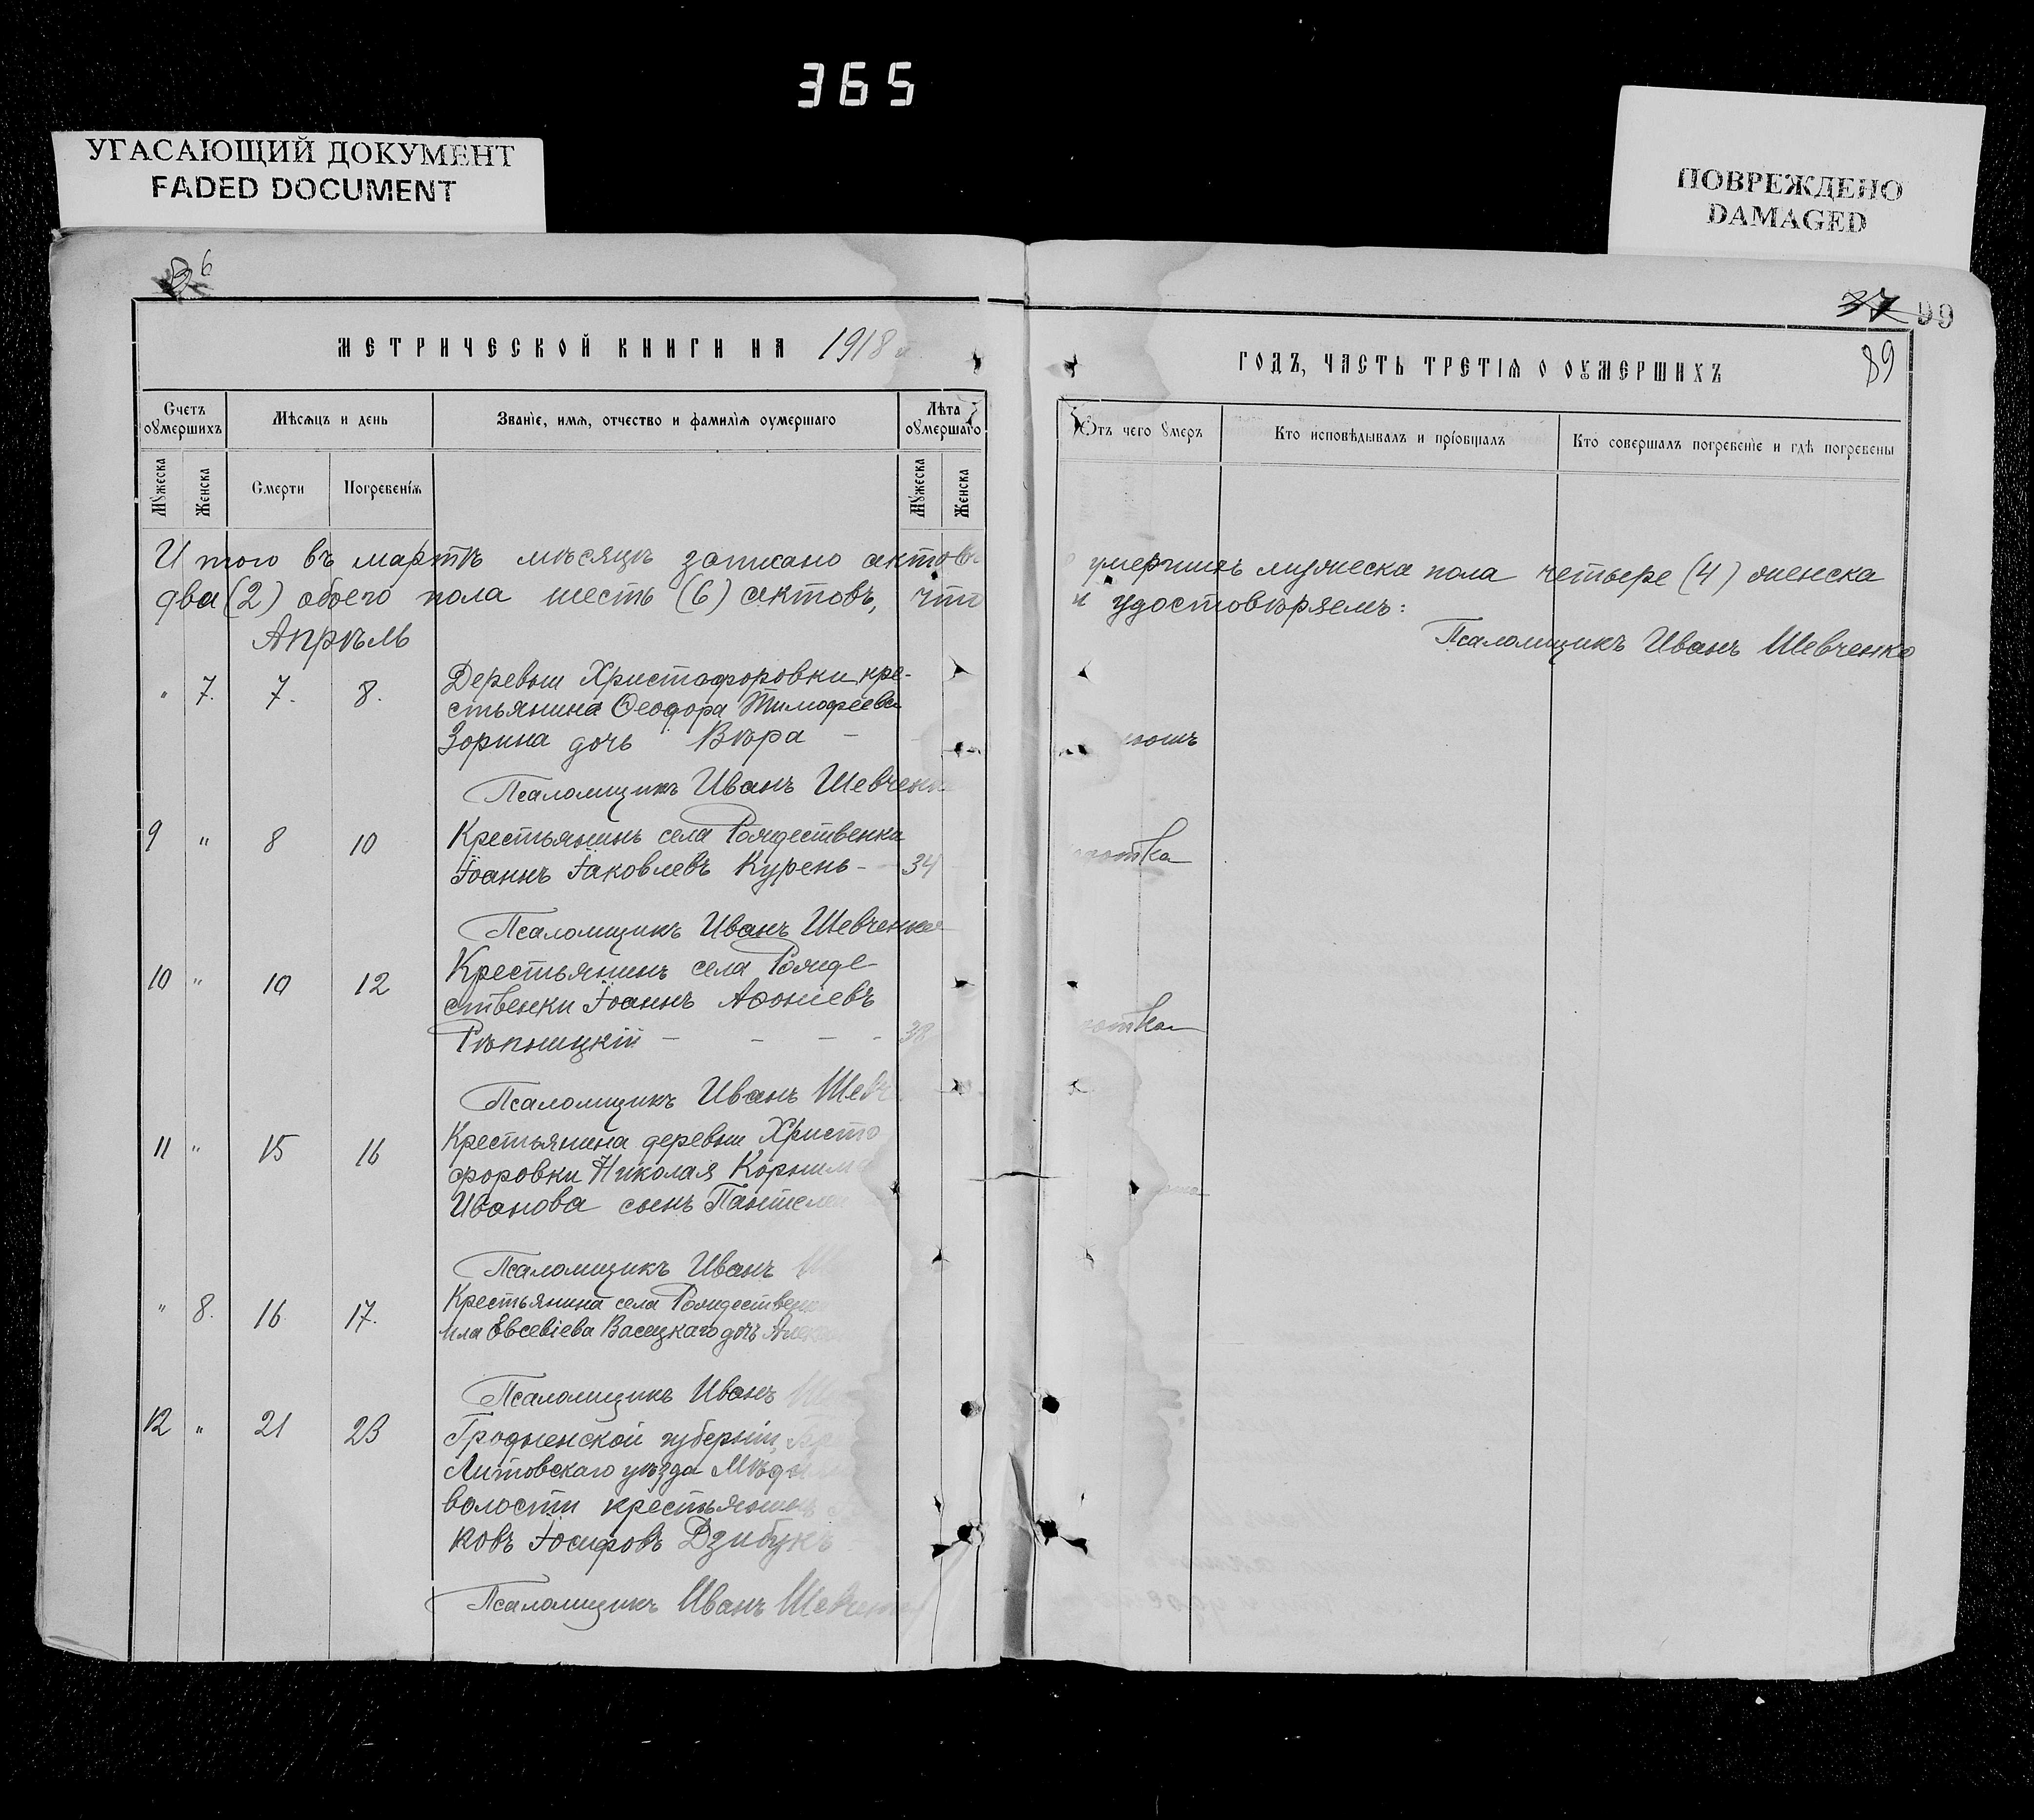 365
УГАСАЮЩИЙ ДОКУМЕНТ
FADED DOCUMENT
ПОВРЕЖДЕНО
DAMAGED
6
37 99
89
МЕТРИЧЕСКОЙ КНИГИ НА 1918
ГОДЪ, ЧАСТЬ ТРЕТІѦ О ОУМЕРШИХЪ
Счетъ оумершихъ
Мѣсѧцъ и день
Званіе, имѧ, отчество и фамиліѧ оумершаго
Лѣта оумершаго
Отъ чего умеръ
Кто исповѣдывалъ и пріобщалъ
Кто совершалъ погребеніе и гдѣ погребены
Мужеска
Женска
Смерти
Погребеніѧ
Мужеска
Женска
Итого въ мартѣ мѣсяцѣ записано актовъ умершихъ мужеска пола четыре (4) женска
два (2) обоего пола шесть (6) актовъ, что и удостовѣряемъ:
Псаломщикъ Иванъ Шевченко
Апрѣль
" 7. 7. 8. Деревни Христофоровки кре-
стьянина Ѳеодора Тимофеева
Зорина дочь Вѣра -
Псаломщикъ Иванъ Шевченк
9 " 8 10 Крестьянинъ села Рождественки
Іоаннъ Іаковлевъ Курень - 34
Псаломщикъ Иванъ Шевченко
10 " 10 12 Крестьянинъ села Рожде
ственки Іоаннъ Аѳоніевъ
Рѣпницкій - - - - 38
Псаломщикъ Иванъ Шевч
11 " 15 16 Крестьянина деревни Христо
форовки Николая Корнил
Иванова сынъ Пантеле
Псаломщикъ Иванъ Ш
" 8. 16 17. Крестьянина села Рождествен
ила Евсевіева Васецкаго дочь Алек
Псаломщикъ Иванъ Ш
12 " 21 23 Гродненской губерніи,
Литовскаго уѣзда Мѣдн
волости крестьянинъ
ковъ Іосифовъ Дзибукъ
Псаломщикъ Иванъ Шевчен